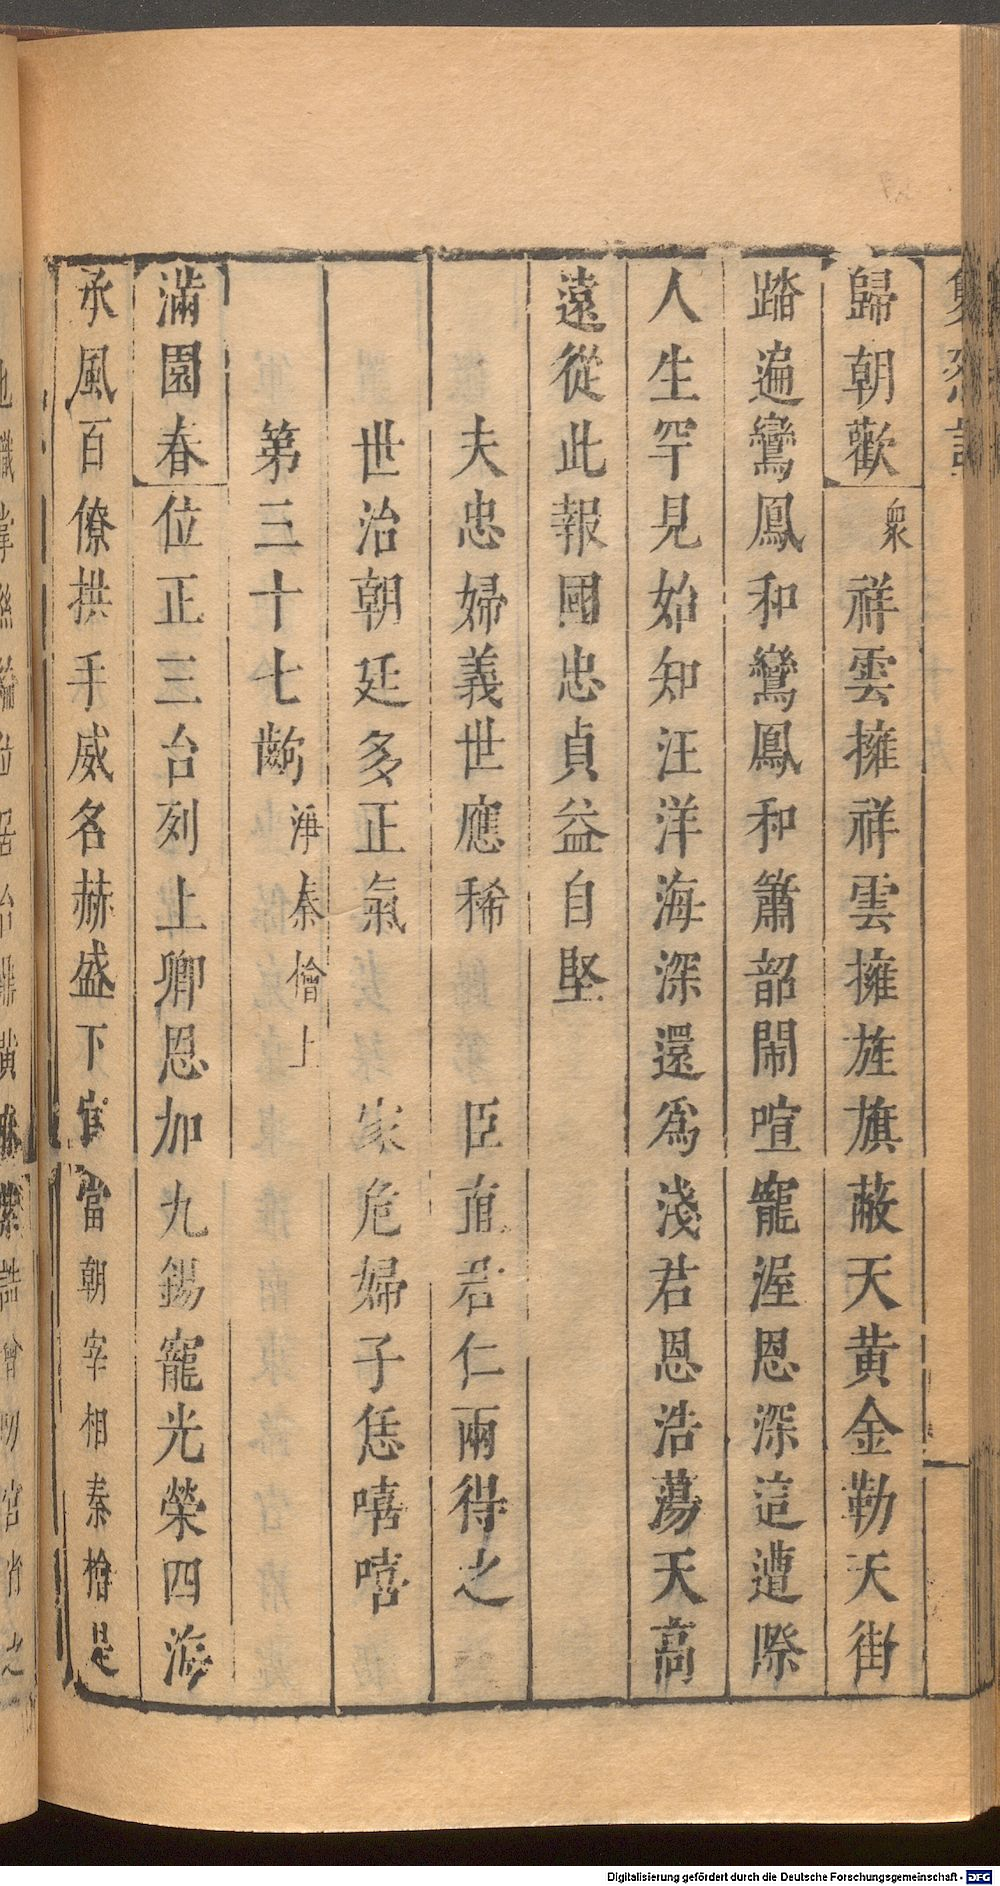 歸朝歡 衆 祥雲擁祥雲擁旌旗蔽天黃金勒天街
踏遍鸞鳳和鸞鳳和簫韶鬧喧寵渥恩深這遭際
人生罕見始知汪洋海深還爲淺君恩浩蕩天高
遠從此報國忠貞益自堅
夫忠婦義世應稀 臣直君仁兩得之
世治朝廷多正氣 家危婦子恁嘻嘻
第三十七齣 淨秦檜上
滿園春 位正三台列上卿恩加九錫寵光榮四海
承風百僚拱手威名赫盛下官當朝宰相秦檜是
也職掌絲綸位居台鼎黃麻紫誥
Digitalisierung gefördert durch die Deutsche Forschungsgemeinschaft - DFG